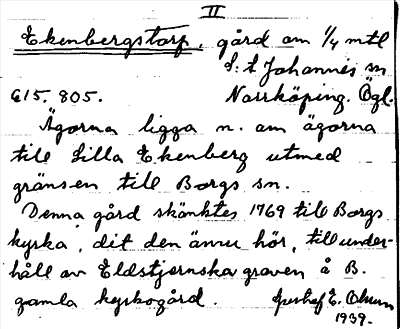 II
Ekenbergstorp, gård om 1/4 mtl
S:t Johannes sn
E15. 805. Norrköping. Ögl.
Ägorna ligga n. om ägorna
till Lilla Ekenberg utmed
gränsen till Borgs sn.
Denna gård skänktes 1769 till Borgs
kyrka, dit den ännu hör, till under-
håll av Eldstjernska graven å B.
gamla kyrkogård. Gustaf E.
1939.